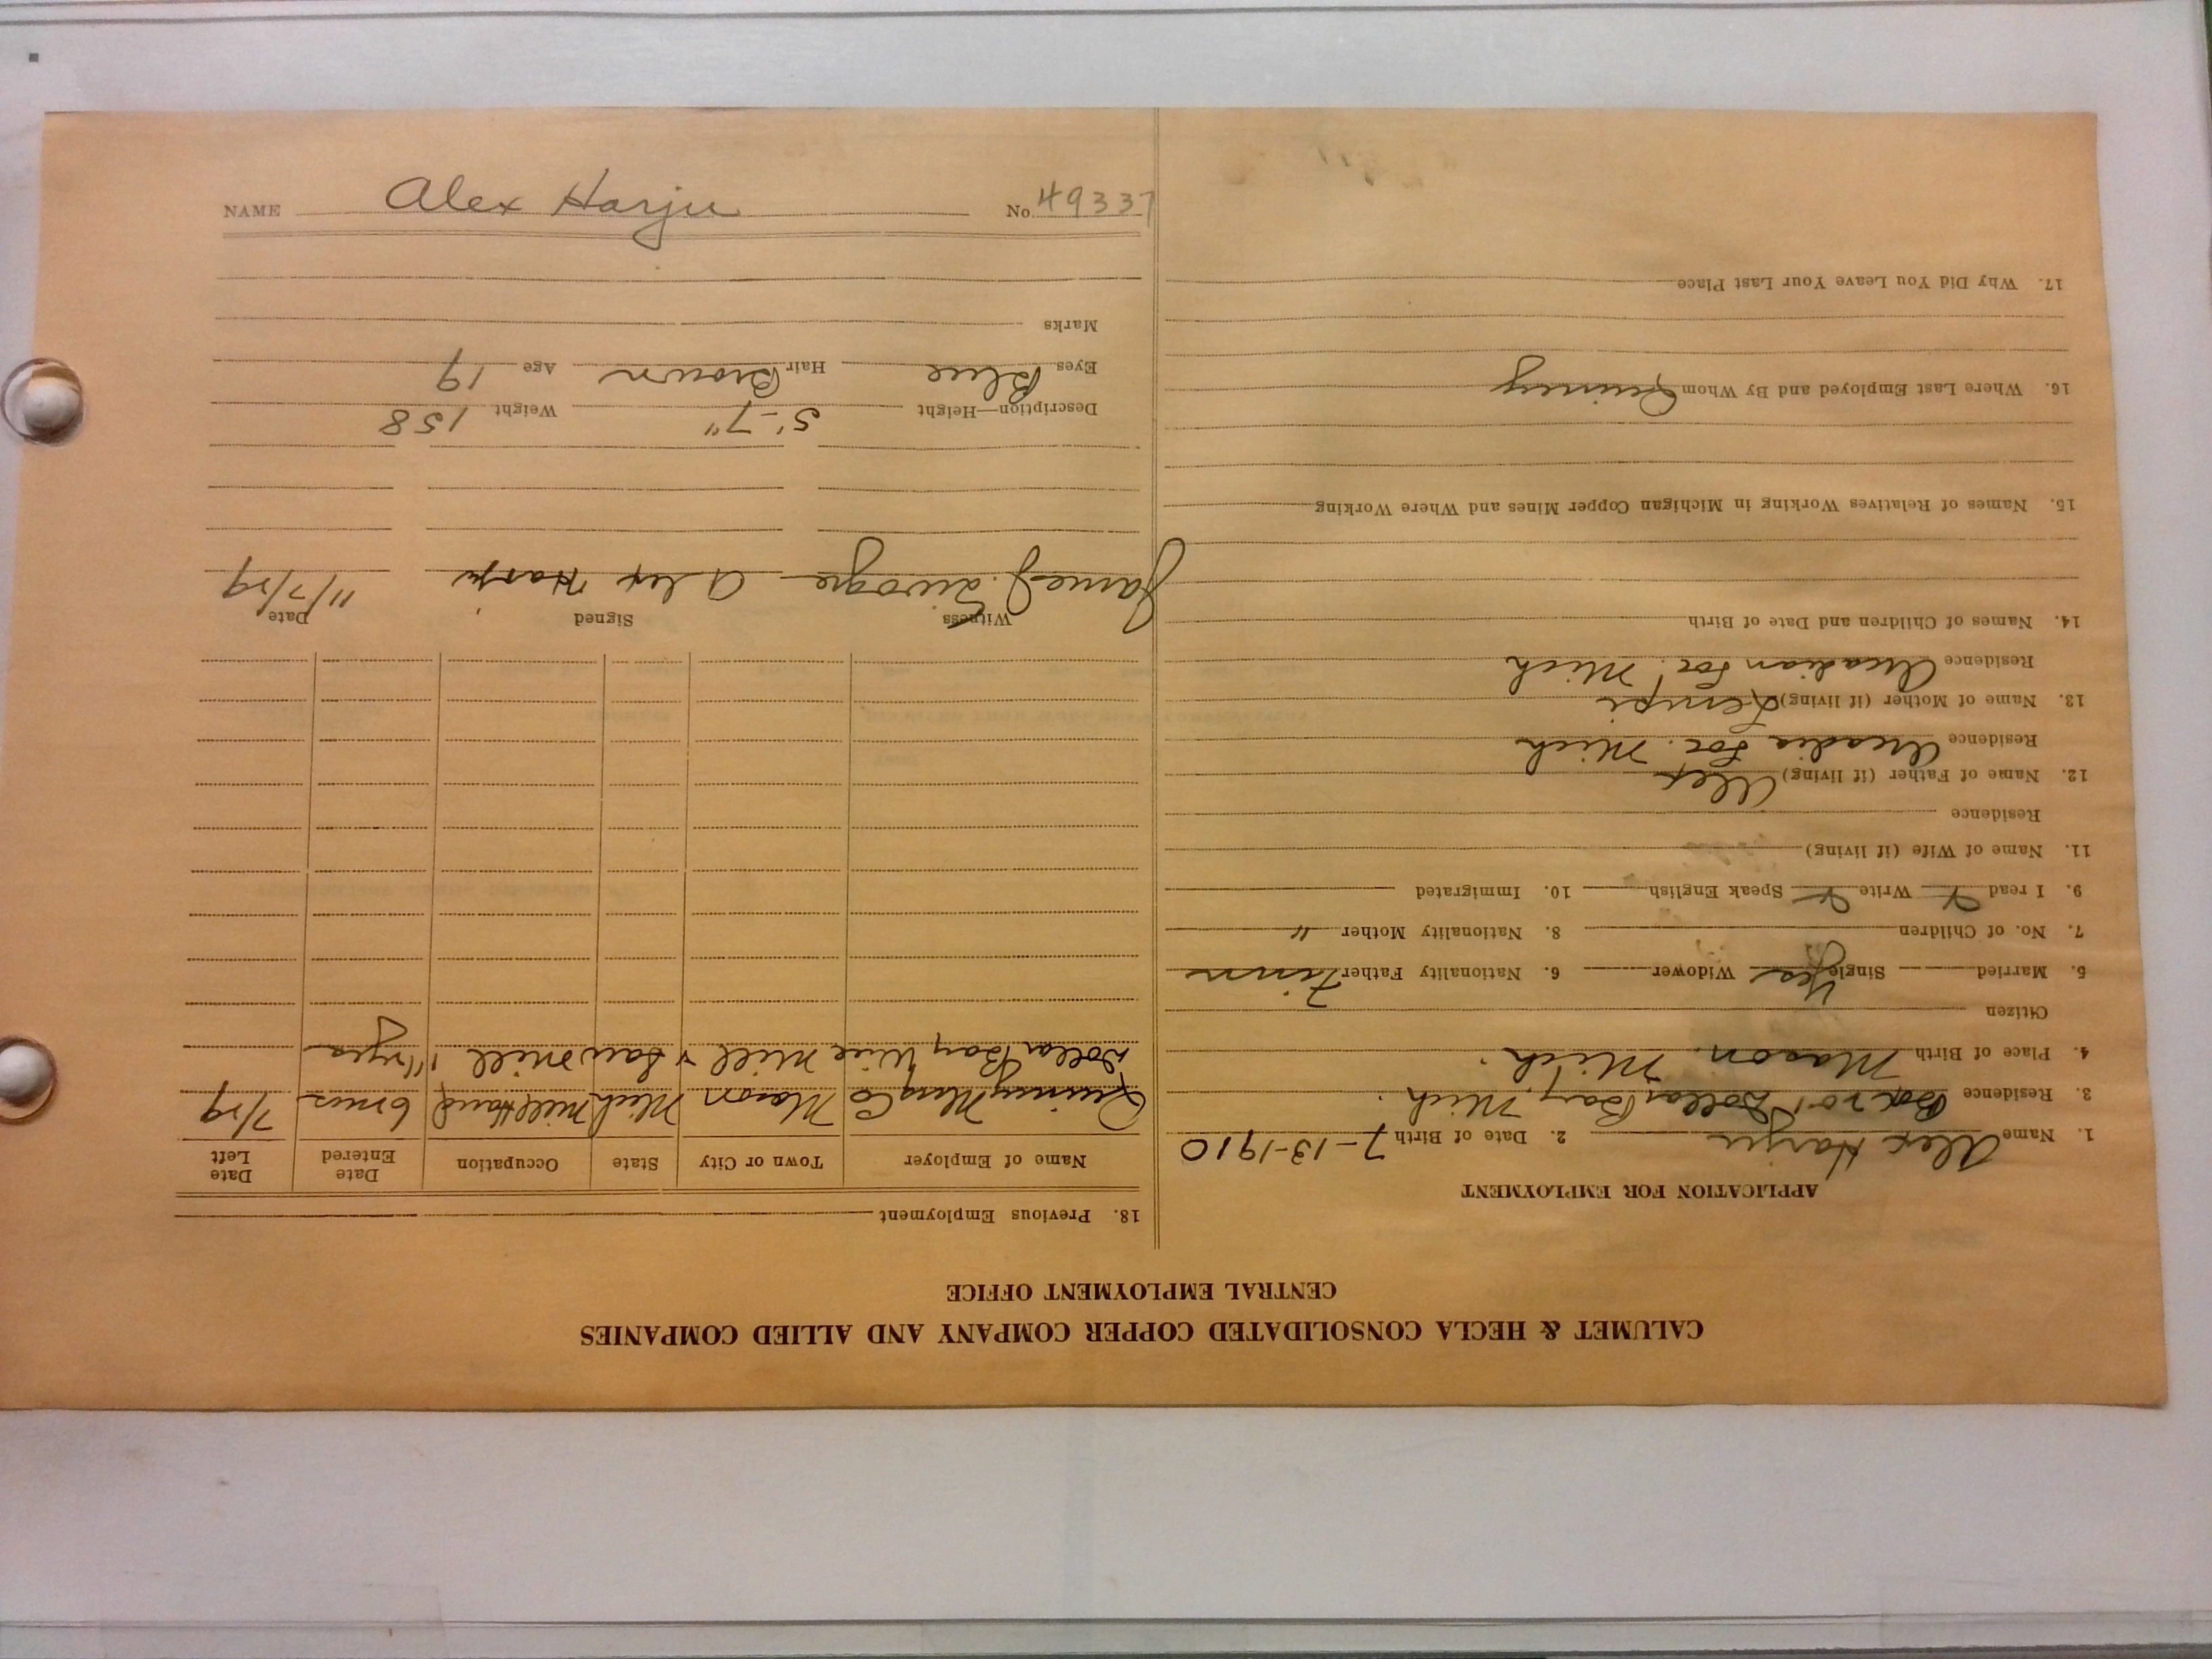 CALUMET & HECLA CONSOLIDATED COPPER COMPANY AND ALLIED COMPANIES
CENTRAL EMPLOYMENT OFFICE
APPLICATION FOR EMPLOYMENT
1. Name Alex Harju 2. Date of Birth 7-13-1910
3. Residence Box 201 Dollar Bay, Mich.
4. Place of Birth Mason. Mich.
Citizen
5. Married Single Yes Widower 6. Nationality Father Finn
7. No. of Children 8. Nationality Mother "
9. I read Write Speak English 10. Immigrated
11. Name of Wife (if living)
Residence
12. Name of Father (if living) Alex
Residence Arcadia Loc. Mich
13. Name of Mother (if living) Lempi
Residence Arcadian Loc. Mich
14. Names of Children and Date of Birth
15. Names of Relatives Working in Michigan Copper Mines and Where Working
16. Where Last Employed and By Whom Quincy
17. Why Did You Leave Your Last Place
18. Previous Employment
Name of Employer Town or City State Occupation Date Entered Date Left
Quincy Mng Co Mason Mich Mill Hand 6 mos 7/29
Dollar Bay Wire Mill & Saw Mill
Witness Signed Date
James J. Alex Harju 11/7/29
Description—Height 5'-7" Weight 158
Eyes Blue Hair Brown Age 19
Marks
NAME Alex Harju No. 49337